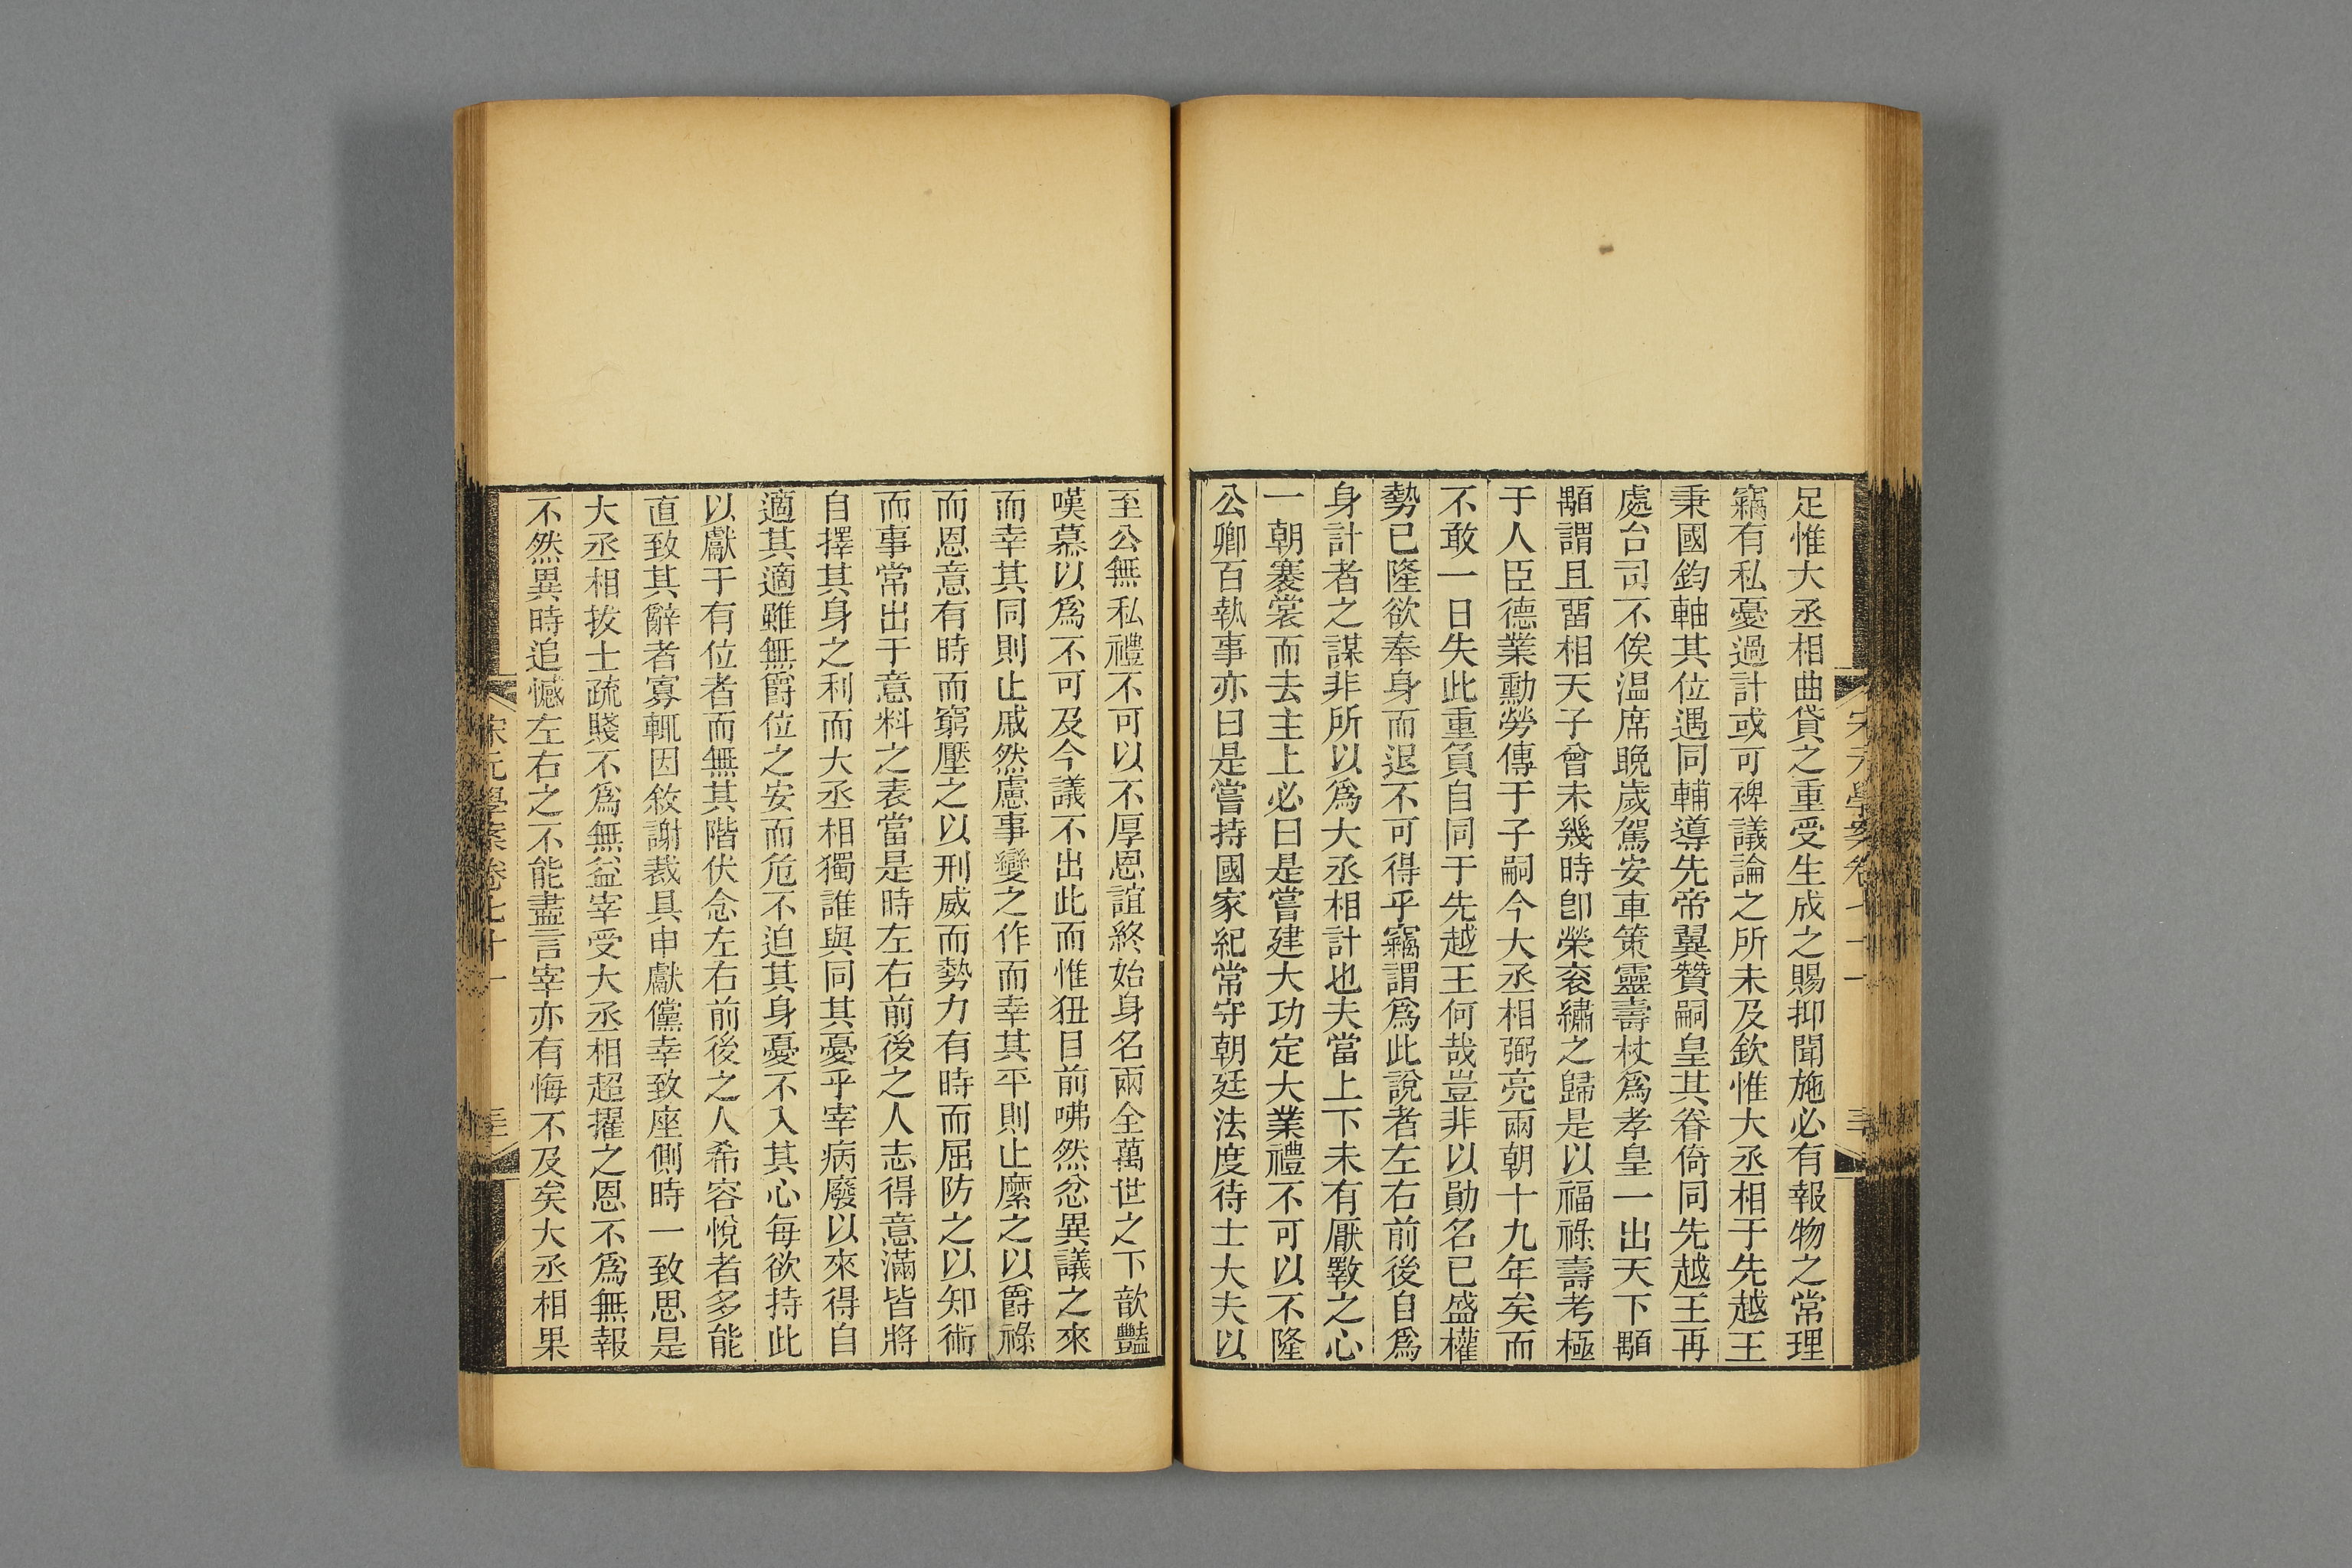 足惟大丞相曲貸之重受生成之賜抑聞施必有報物之常理
竊有私憂過計或可裨議論之所未及欽惟大丞相于先越王
秉國鈞軸其位遇同輔導先帝翼贊嗣皇其眷倚同先越王再
處台司不俟温席晚歲駕安車策靈壽杖爲孝皇一出天下顒
顒謂且畱相天子曾未幾時卽榮衮繡之歸是以福祿壽考極
于人臣德業勳勞傳于子嗣今大丞相弼亮兩朝十九年矣而
不敢一日失此重負自同于先越王何哉豈非以勛名已盛權
勢已隆欲奉身而退不可得乎竊謂爲此說者左右前後自爲
身計者之謀非所以爲大丞相計也夫當上下未有厭斁之心
一朝褰裳而去主上必曰是嘗建大功定大業禮不可以不隆
公卿百執事亦曰是嘗持國家紀常守朝廷法度待士大夫以
至公無私禮不可以不厚恩誼終始身名兩全萬世之下歆豔
嘆慕以爲不可及今議不出此而惟狃目前咈然忿異議之來
而幸其同則止戚然慮事變之作而幸其平則止縻之以爵祿
而恩意有時而窮壓之以刑威而勢力有時而屈防之以知術
而事常出于意料之表當是時左右前後之人志得意滿皆將
自擇其身之利而大丞相獨誰與同其憂乎宰病廢以來得自
適其適雖無爵位之安而危不迫其身憂不入其心每欲持此
以獻于有位者而無其階伏念左右前後之人希容悅者多能
直致其辭者寡輒因敘謝裁具申獻儻幸致座側時一致思是
大丞相拔士疏賤不爲無益宰受大丞相超擢之恩不爲無報
不然異時追憾左右之不能盡言宰亦有悔不及矣大丞相果
宋元學案卷七十一